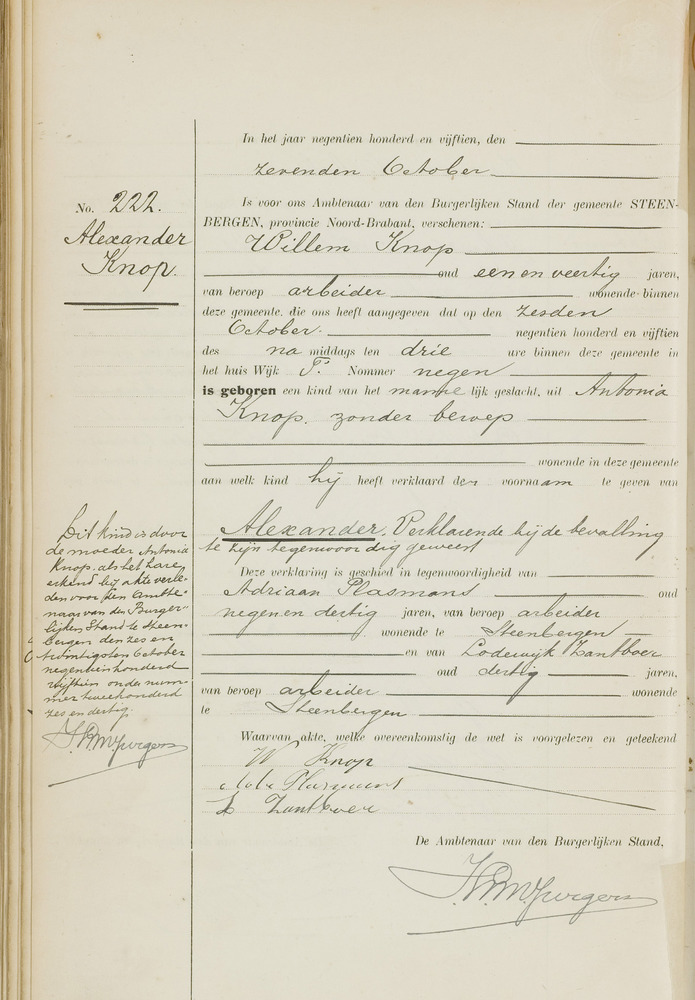 No. 222.
Alexander
Knop.
In het jaar negentien honderd en vijftien, den
zevenden October
Is voor ons Ambtenaar van den Burgerlijken Stand der gemeente STEEN-
BERGEN, provincie Noord-Brabant, verschenen:
Willem Knop
oud een en veertig jaren,
van beroep arbeider wonende binnen
deze gemeente, die ons heeft aangegeven dat op den zesden
October. negentien honderd en vijftien
des na middags ten drie ure binnen deze gemeente in
het huis Wijk F. Nommer negen
is geboren een kind van het manne lijk geslacht, uit Antonia
Knop, zonder beroep
wonende in deze gemeente
aan welk kind hij heeft verklaard den voornaam te geven van
Alexander. Verklarende bij de bevalling
te zijn tegenwoordig geweest
Deze verklaring is geschied in tegenwoordigheid van
Adriaan Plasmans oud
negen en dertig jaren, van beroep arbeider
wonende te Steenbergen
en van Lodewijk Zantboer
oud dertig jaren,
van beroep arbeider wonende
te Steenbergen
Waarvan akte, welke overeenkomstig de wet is voorgelezen en geteekend
W Knop
Plasmans
L Zantboer
De Ambtenaar van den Burgerlijken Stand,
Dit kind is door
de moeder Antonia
Knop, als het hare
erkend bij akte verle-
den voor den Ambte-
naar van den Burger-
lijken Stand te Steen-
bergen den zes en
twintigsten October
negentienhonderd
vijftien onder num-
mer tweehonderd
zes en dertig.